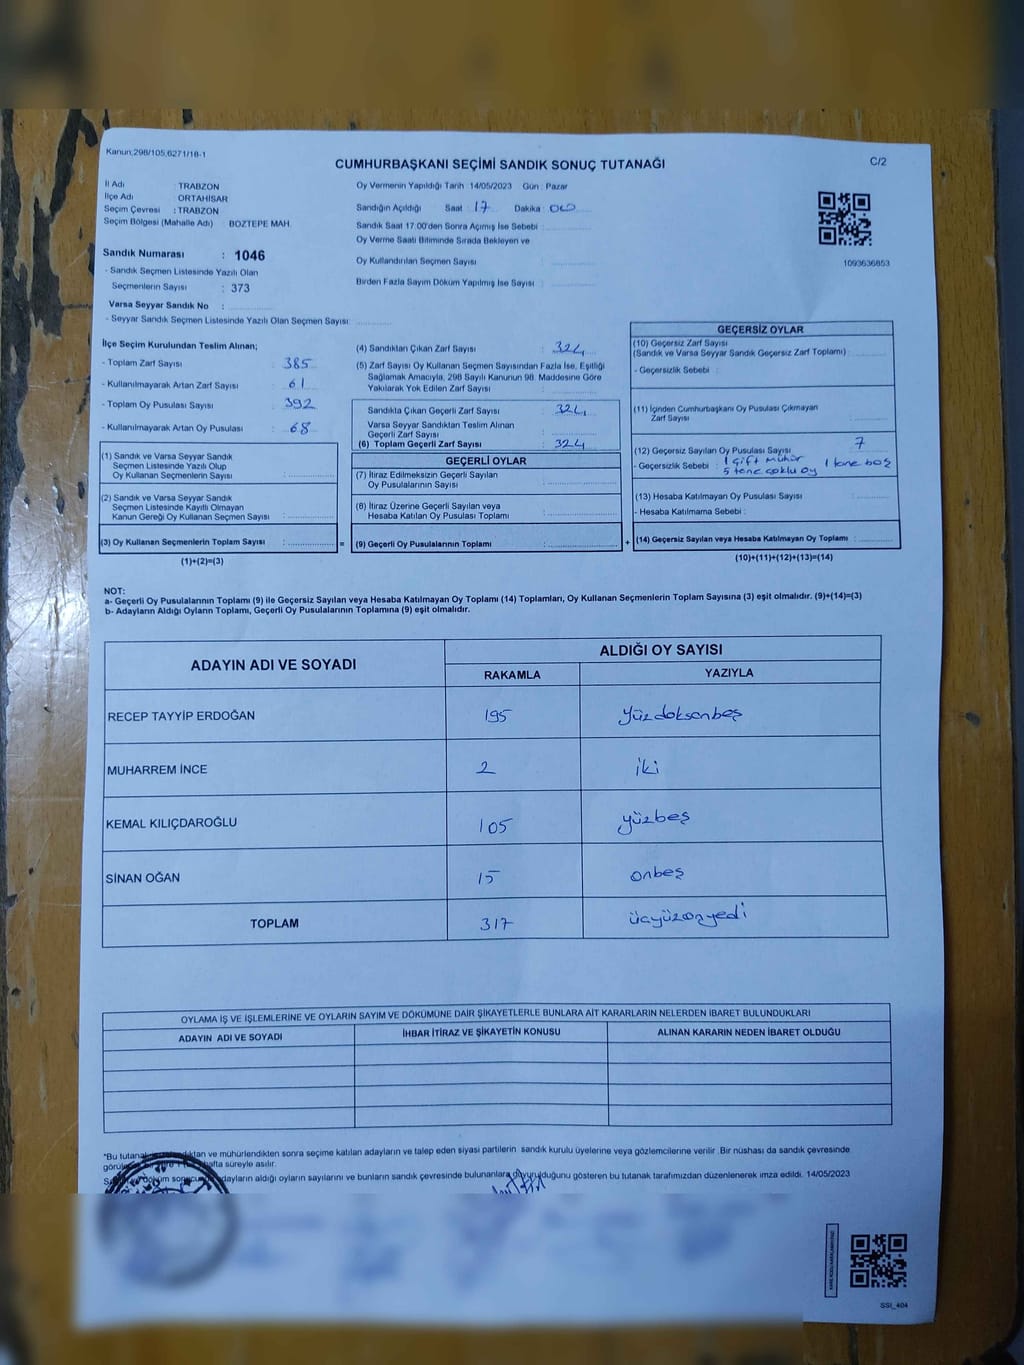 Kanun;298/105,6271/18-1
CUMHURBAŞKANI SEÇİMİ SANDIK SONUÇ TUTANAĞI
C/2
İl Adı : TRABZON
İlçe Adı : ORTAHİSAR
Seçim Çevresi : TRABZON
Seçim Bölgesi (Mahalle Adı) : BOZTEPE MAH.
Sandık Numarası : 1046
- Sandık Seçmen Listesinde Yazılı Olan
Seçmenlerin Sayısı : 373
Varsa Seyyar Sandık No :
- Seyyar Sandık Seçmen Listesinde Yazılı Olan Seçmen Sayısı:
Oy Vermenin Yapıldığı Tarih 14/05/2023 Gün : Pazar
Sandığın Açıldığı Saat : 17 Dakika :
Sandık Saat 17:00'den Sonra Açımış İse Sebebi :
Oy Verme Saati Bitiminde Sırada Bekleyen ve
Oy Kullandırılan Seçmen Sayısı :
Birden Fazla Sayım Döküm Yapılmış İse Sayısı :
1093636853
İlçe Seçim Kurulundan Teslim Alınan;
- Toplam Zarf Sayısı : 385
- Kullanılmayarak Artan Zarf Sayısı : 61
- Toplam Oy Pusulası Sayısı : 392
- Kullanılmayarak Artan Oy Pusulası : 68
(1) Sandık ve Varsa Seyyar Sandık
Seçmen Listesinde Yazılı Olup
Oy Kullanan Seçmenlerin Sayısı :
(2) Sandık ve Varsa Seyyar Sandık
Seçmen Listesinde Kayıtlı Olmayan
Kanun Gereği Oy Kullanan Seçmen Sayısı :
(3) Oy Kullanan Seçmenlerin Toplam Sayısı : =
(1)+(2)=(3)
(4) Sandıktan Çıkan Zarf Sayısı : 324
(5) Zarf Sayısı Oy Kullanan Seçmen Sayısından Fazla İse, Eşitliği
Sağlamak Amacıyla, 298 Sayılı Kanunun 98. Maddesine Göre
Yakılarak Yok Edilen Zarf Sayısı :
Sandıkta Çıkan Geçerli Zarf Sayısı : 324
Varsa Seyyar Sandıktan Teslim Alınan
Geçerli Zarf Sayısı :
(6) Toplam Geçerli Zarf Sayısı : 324
GEÇERLİ OYLAR
(7) İtiraz Edilmeksizin Geçerli Sayılan
Oy Pusulalarının Sayısı :
(8) İtiraz Üzerine Geçerli Sayılan veya
Hesaba Katılan Oy Pusulası Toplamı :
(9) Geçerli Oy Pusulalarının Toplamı : +
GEÇERSİZ OYLAR
(10) Geçersiz Zarf Sayısı
(Sandık ve Varsa Seyyar Sandık Geçersiz Zarf Toplamı) :
- Geçersizlik Sebebi :
(11) İçinden Cumhurbaşkanı Oy Pusulası Çıkmayan
Zarf Sayısı :
(12) Geçersiz Sayılan Oy Pusulası Sayısı : 7
- Geçersizlik Sebebi : 1 çift mühür
5 tane çoklu oy 1 tane boş
(13) Hesaba Katılmayan Oy Pusulası Sayısı :
- Hesaba Katılmama Sebebi :
(14) Geçersiz Sayılan veya Hesaba Katılmayan Oy Toplamı :
(10)+(11)+(12)+(13)=(14)
NOT:
a- Geçerli Oy Pusulalarının Toplamı (9) ile Geçersiz Sayılan veya Hesaba Katılmayan Oy Toplamı (14) Toplamları, Oy Kullanan Seçmenlerin Toplam Sayısına (3) eşit olmalıdır. (9)+(14)=(3)
b- Adayların Aldığı Oyların Toplamı, Geçerli Oy Pusulalarının Toplamına (9) eşit olmalıdır.
ADAYIN ADI VE SOYADI
ALDIĞI OY SAYISI
RAKAMLA YAZIYLA
RECEP TAYYİP ERDOĞAN 195 yüzdoksanbeş
MUHARREM İNCE 2 iki
KEMAL KILIÇDAROĞLU 105 yüzbeş
SİNAN OĞAN 15 onbeş
TOPLAM 317 üçyüzonyedi
OYLAMA İŞ VE İŞLEMLERİNE VE OYLARIN SAYIM VE DÖKÜMÜNE DAİR ŞİKAYETLERLE BUNLARA AİT KARARLARIN NELERDEN İBARET BULUNDUKLARI
ADAYIN ADI VE SOYADI İHBAR İTİRAZ VE ŞİKAYETİN KONUSU ALINAN KARARIN NEDEN İBARET OLDUĞU
*Bu tutanak ve mühürlendikten sonra seçime katılan adayların ve talep eden siyasi partilerin sandık kurulu üyelerine veya gözlemcilerine verilir .Bir nüshası da sandık çevresinde
hafta süreyle asılır.
döküm adayların aldığı oyların sayılarını ve bunların sandık çevresinde bulunanlara duyurulduğunu gösteren bu tutanak tarafımızdan düzenlenerek imza edildi. 14/05/2023
SSI_404